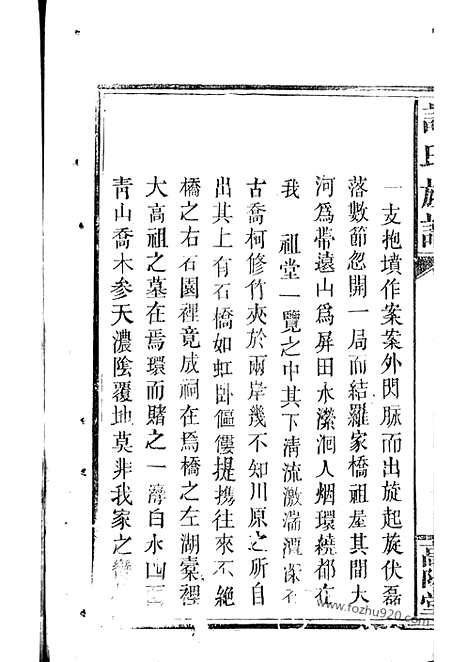 許氏族譜
高陽堂
一支抱墳作案案外閃脉而出旋起旋伏磊
落數節忽開一局而結羅家橋祖屋其間大
河爲帶遠山爲屏田水瀠洄人烟環繞都在
我　祖堂一覽之中其下淸流激湍潭深
古喬柯修竹夾於兩岸幾不知川原之所自
出其上有石橋如虹卧傴僂提携往來不絕
橋之右石園裡竟成祠在焉橋之左湖棗裡
大高祖之墓在焉環而睹之一灣白水四
青山喬木参天濃陰覆地莫非我家之
www.fozhu920.com